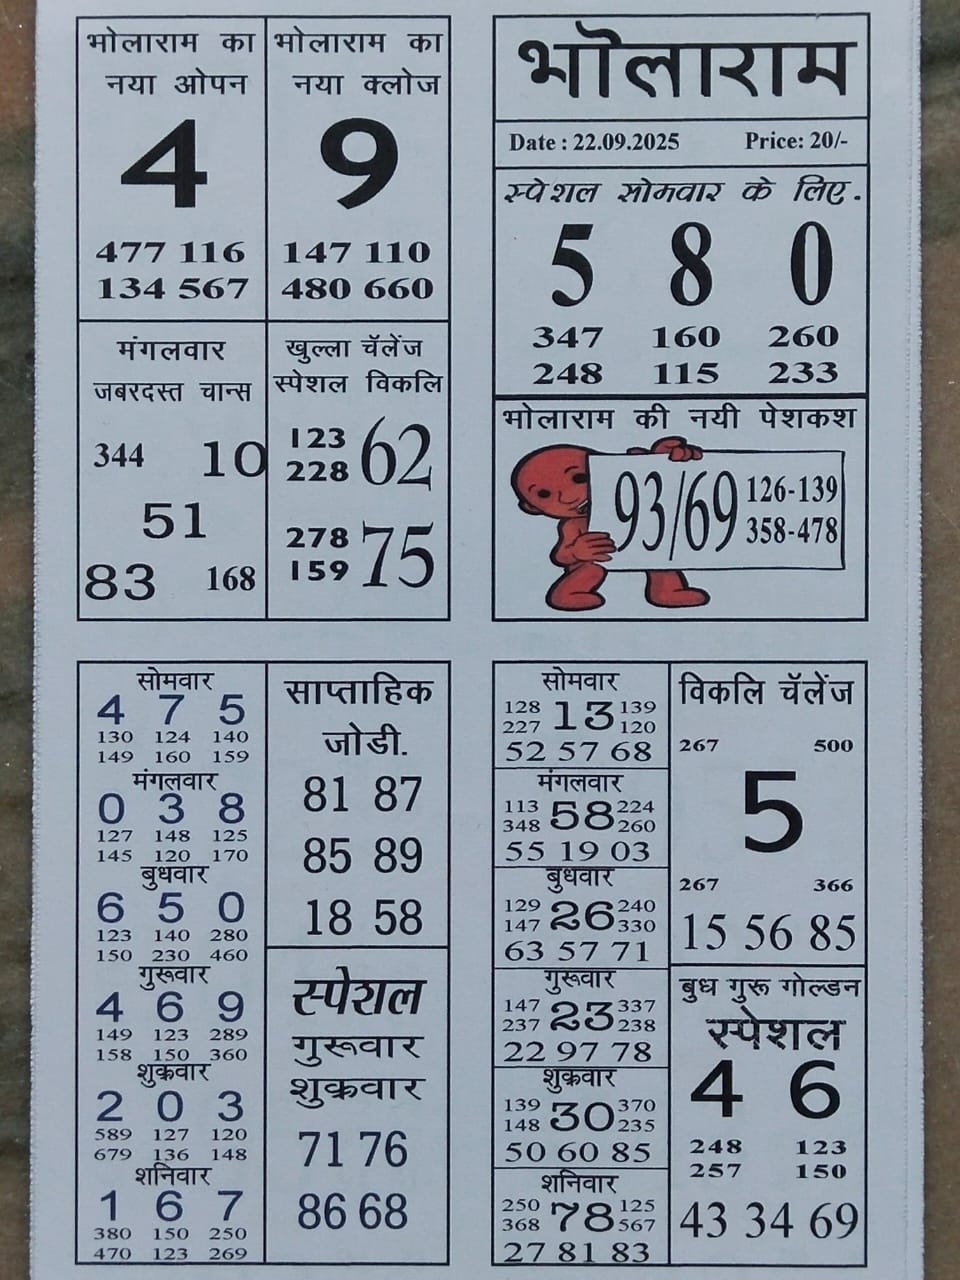 भोलाराम का
नया ओपन
4
477 116
134 567
भोलाराम का
नया क्लोज
9
147 110
480 660
मंगलवार
जबरदस्त चान्स
344 10
51
83 168
खुल्ला चॅलेंज
स्पेशल विकलि
123 62
228
278 75
159
भोलाराम
Date : 22.09.2025 Price: 20/-
स्पेशल सोमवार के लिए.
5 8 0
347 160 260
248 115 233
भोलाराम की नयी पेशकश
93/69 126-139
358-478
सोमवार
4 7 5
130 124 140
149 160 159
मंगलवार
0 3 8
127 148 125
145 120 170
बुधवार
6 5 0
123 140 280
150 230 460
गुरूवार
4 6 9
149 123 289
158 150 360
शुक्रवार
2 0 3
589 127 120
679 136 148
शनिवार
1 6 7
380 150 250
470 123 269
साप्ताहिक
जोडी.
81 87
85 89
18 58
स्पेशल
गुरूवार
शुक्रवार
71 76
86 68
सोमवार
128 13 139
227 120
52 57 68
मंगलवार
113 58 224
348 260
55 19 03
बुधवार
129 26 240
147 330
63 57 71
गुरूवार
147 23 337
237 238
22 97 78
शुक्रवार
139 30 370
148 235
50 60 85
शनिवार
250 78 125
368 567
27 81 83
विकलि चॅलेंज
267 500
5
267 366
15 56 85
बुध गुरू गोल्डन
स्पेशल
4 6
248 123
257 150
43 34 69